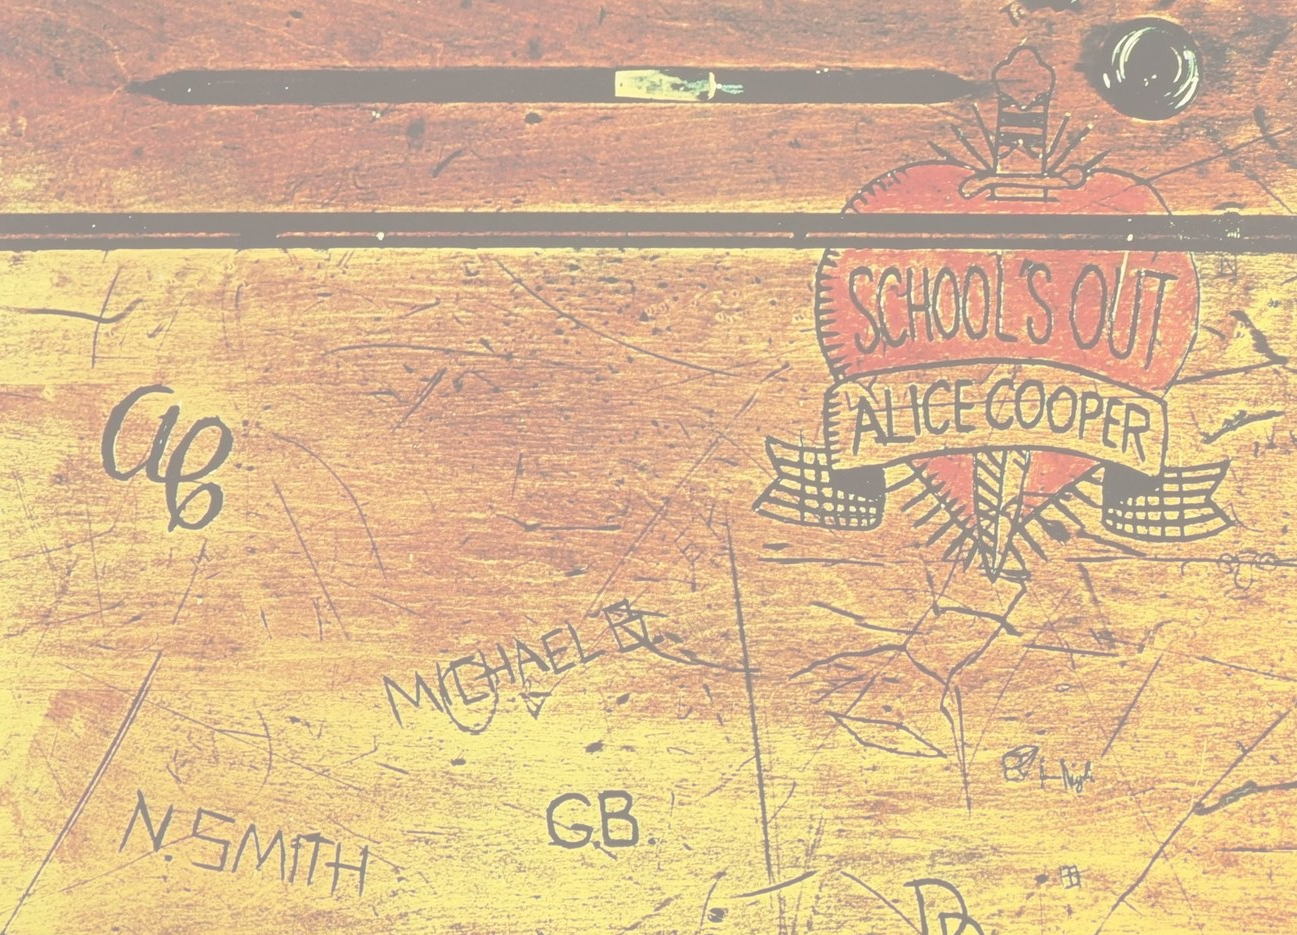 SCHOOL'S OUT
ALICE COOPER
ac
MICHAEL B.
N. SMITH
G.B.
D